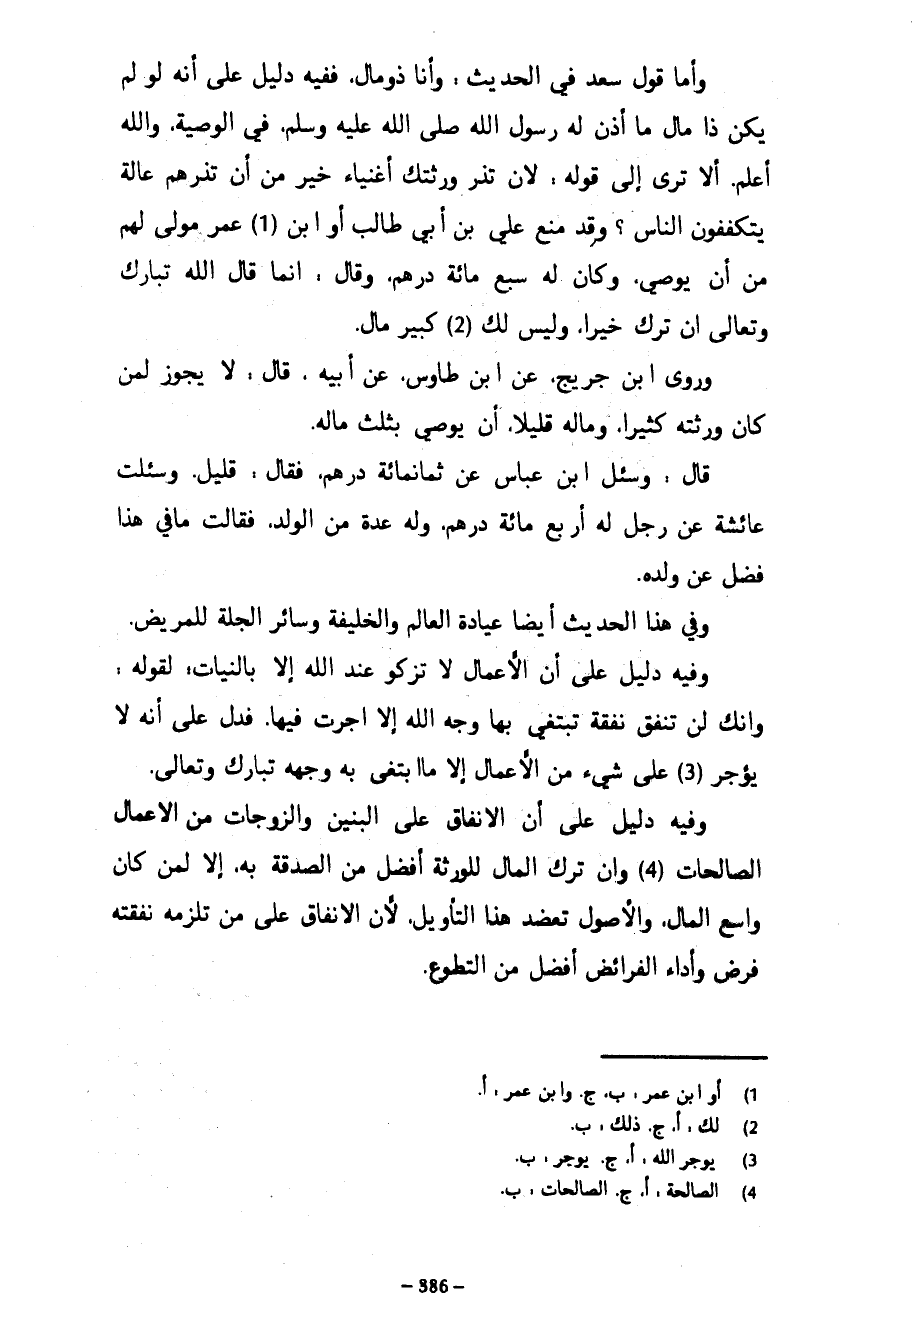 وأما قول سعد في الحديث : وأنا ذومال، ففيه دليل على أنه لو لم
يكن ذا مال ما أذن له رسول الله صلى الله عليه وسلم، في الوصية، والله
أعلم. ألا ترى إلى قوله : لان تذر ورثتك أغنياء خير من أن تذرهم عالة
يتكففون الناس ؟ وقد منع علي بن أبي طالب أو ابن (1) عمر مولى لهم
من أن يوصي، وكان له سبع مائة درهم، وقال : انما قال الله تبارك
وتعالى ان ترك خيرا، وليس لك (2) كبير مال.
وروى ابن جريج، عن ابن طاوس، عن أبيه ، قال : لا يجوز لمن
كان ورثته كثيرا، وماله قليلا، أن يوصي بثلث ماله.
قال : وسئل ابن عباس عن ثمانمائة درهم، فقال : قليل. وسئلت
عائشة عن رجل له أربع مائة درهم، وله عدة من الولد، فقالت مافي هذا
فضل عن ولده.
وفي هذا الحديث أيضا عيادة العالم والخليفة وسائر الجلة للمريض.
وفيه دليل على أن الأعمال لا تزكو عند الله إلا بالنيات؛ لقوله :
وانك لن تنفق نفقة تبتغي بها وجه الله إلا اجرت فيها. فدل على أنه لا
يؤجر (3) على شيء من الأعمال إلا ماابتغى به وجهه تبارك وتعالى.
وفيه دليل على أن الانفاق على البنين والزوجات من الاعمال
الصالحات (4) وان ترك المال للورثة أفضل من الصدقة به، إلا لمن كان
واسع المال، والأصول تعضد هذا التأويل، لأن الانفاق على من تلزمه نفقته
فرض وأداء الفرائض أفضل من التطوع.
1) أو ابن عمر : ب، ج. وابن عمر : أ.
2) لك : أ، ج. ذلك : ب.
3) يوجر الله : أ، ج. يوجر : ب.
4) الصالحة : أ، ج. الصالحات : ب.
- 386 -